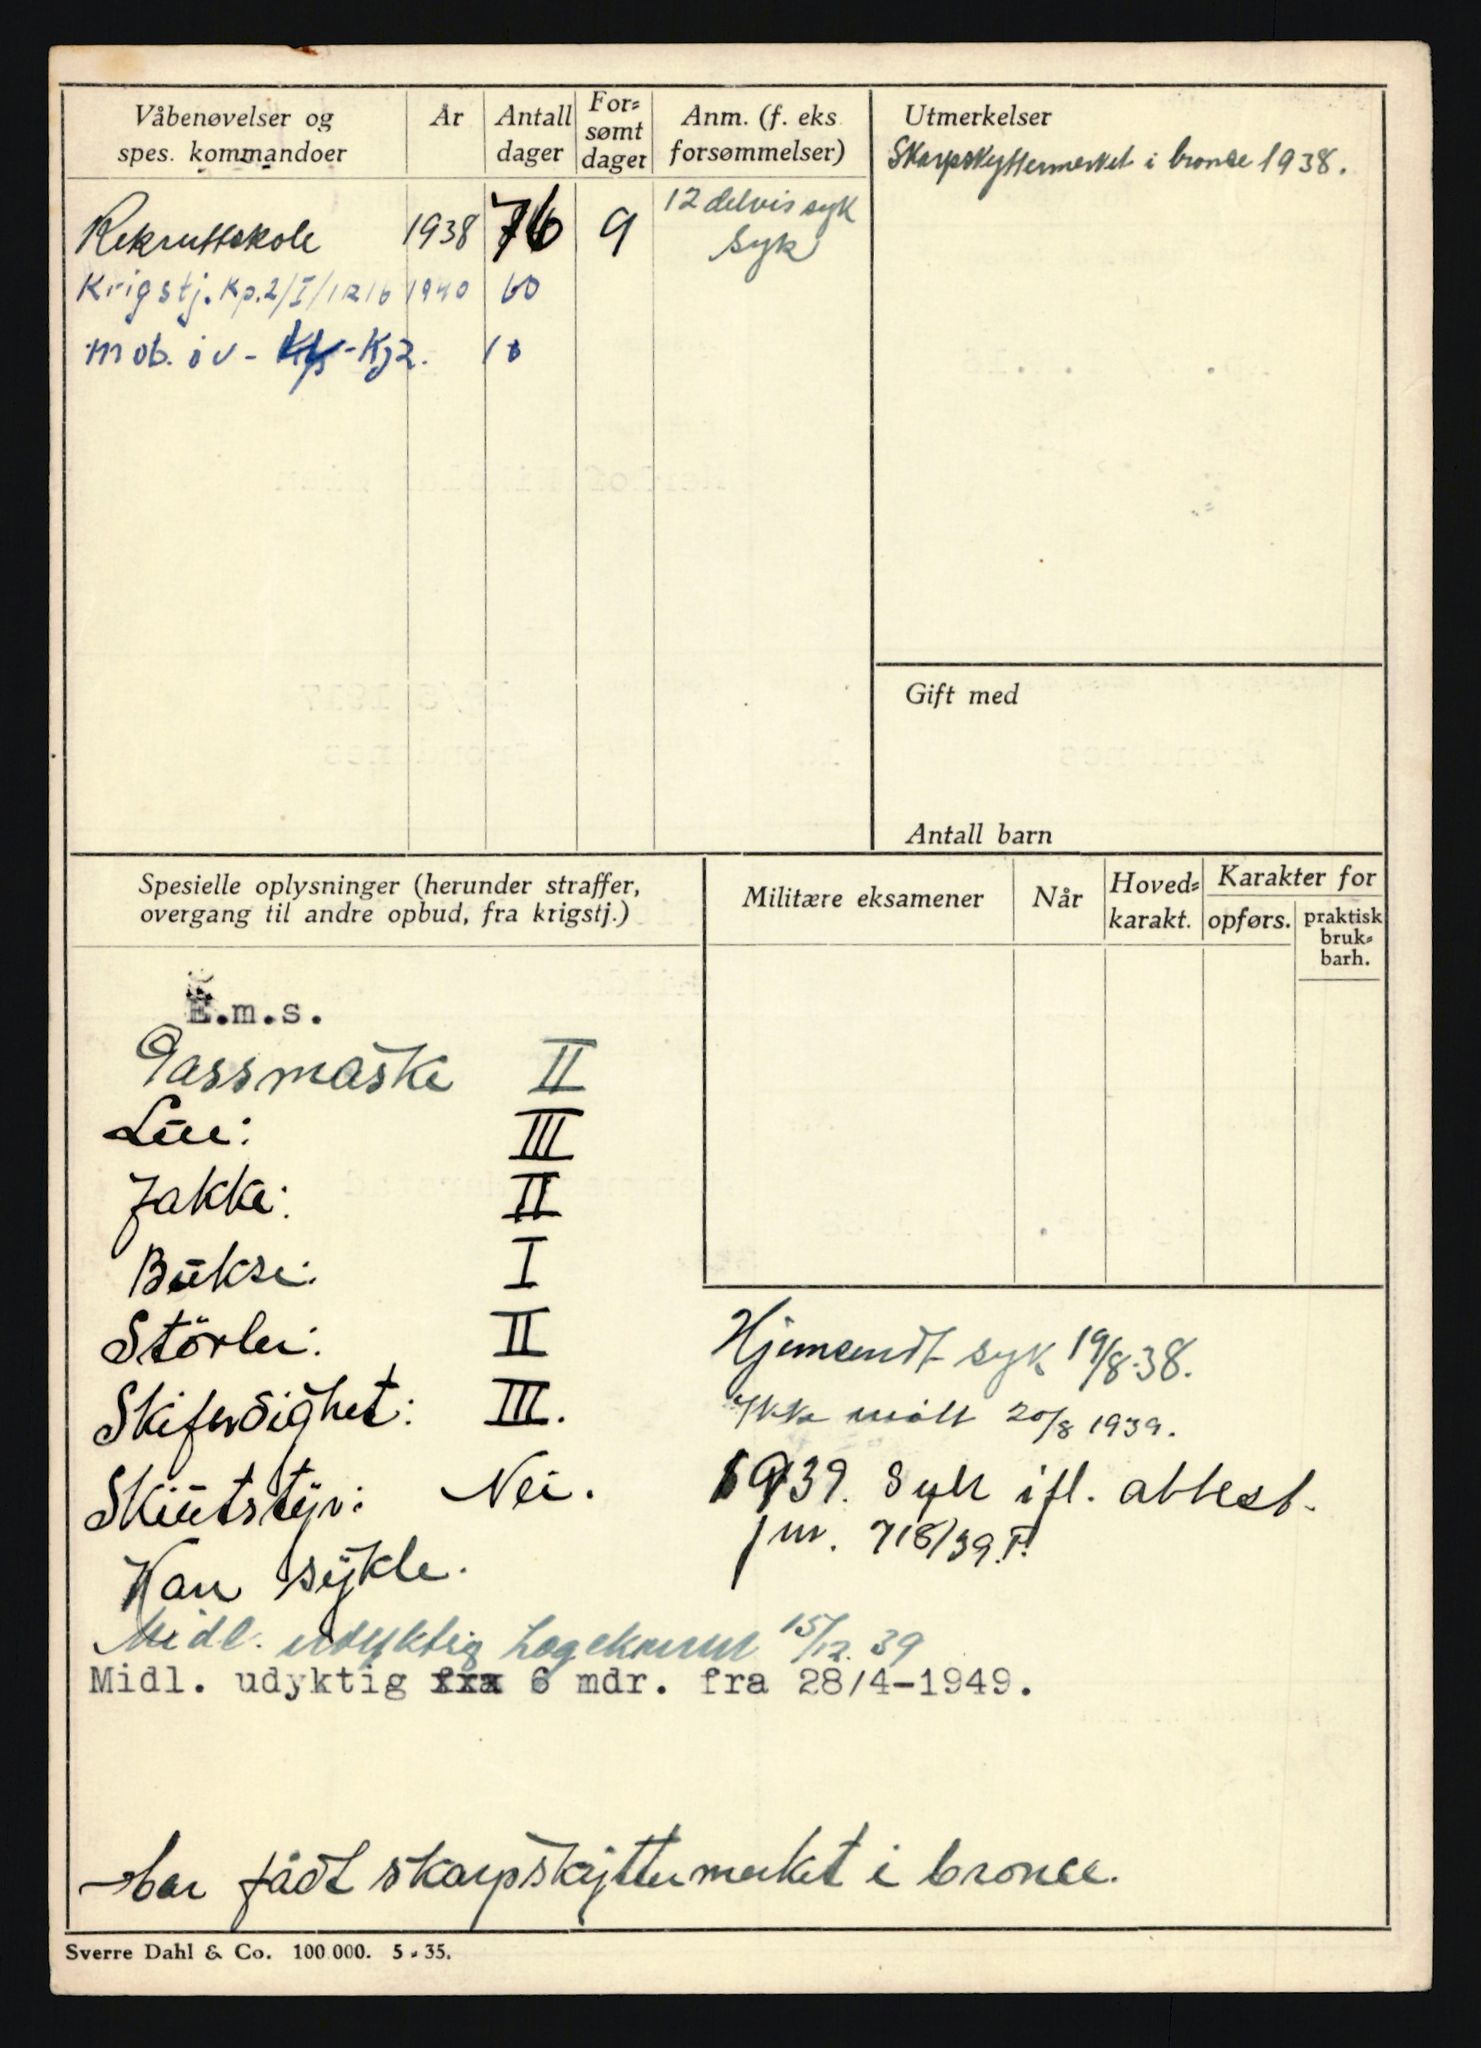 Våbenøvelser og spes. kommandoer
År
Antall dager
For=sømt dager
Anm. (f. eks forsømmelser)
Utmerkelser
Skarpskyttermerket i bronse 1938.
Rekruttskole 1938 76 9 12 delvis syk
syk
Krigstj. Kp.2/I/IR16 1940 60
mob. öv - Kp - Kj2. 10
Gift med
Antall barn
Spesielle oplysninger (herunder straffer,
overgang til andre opbud, fra krigstj.)
Militære eksamener
Når
Hoved=karakt.
Karakter for
opførs.
praktisk bruk=barh.
E.m.s.
Gassmaske II
Lue: III
Jakke: II
Bukse: I
Störler: II
Skiferdighet: III.
Skiutstyr: Nei.
Kan sykle.
Hjemsendt syk 19/8-38.
Ikke møtt 20/8 1939.
1939. Syk ifl. attest.
jnr. 718/39.P.
Midl. udyktig Legekomm 15/12. 39
Midl. udyktig xxx 6 mdr. fra 28/4-1949.
har fådt skarpskyttermerket i bronse.
Sverre Dahl & Co. 100.000. 5-35.